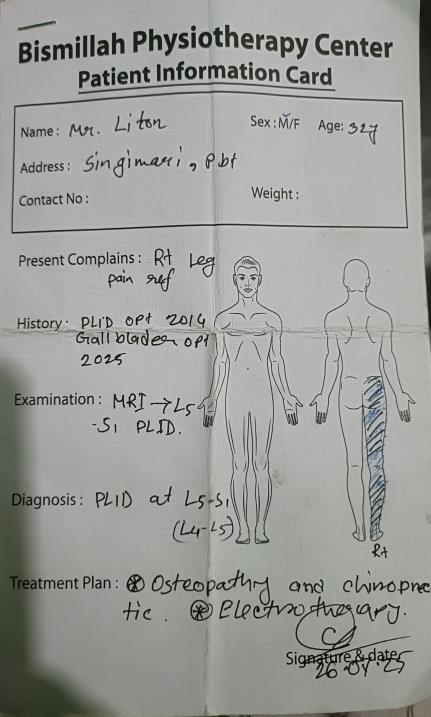 Bismillah Physiotherapy Center
Patient Information Card
Name : Mr. Liton Sex : M/F Age: 32y
Address : Singimari, Pbt
Contact No : Weight :
Present Complains : Rt Leg
pain ref
History : PLID OPt 2014
Gall bladder OPt
2025
Examination : MRI → L5
-S1 PLID.
Diagnosis : PLID at L5-S1
(L4-L5)
Rt
Treatment Plan : ⊛ Osteopathy and chiroprac
tic. ⊛ Electrotherapy.
Signature & date
26.04.25